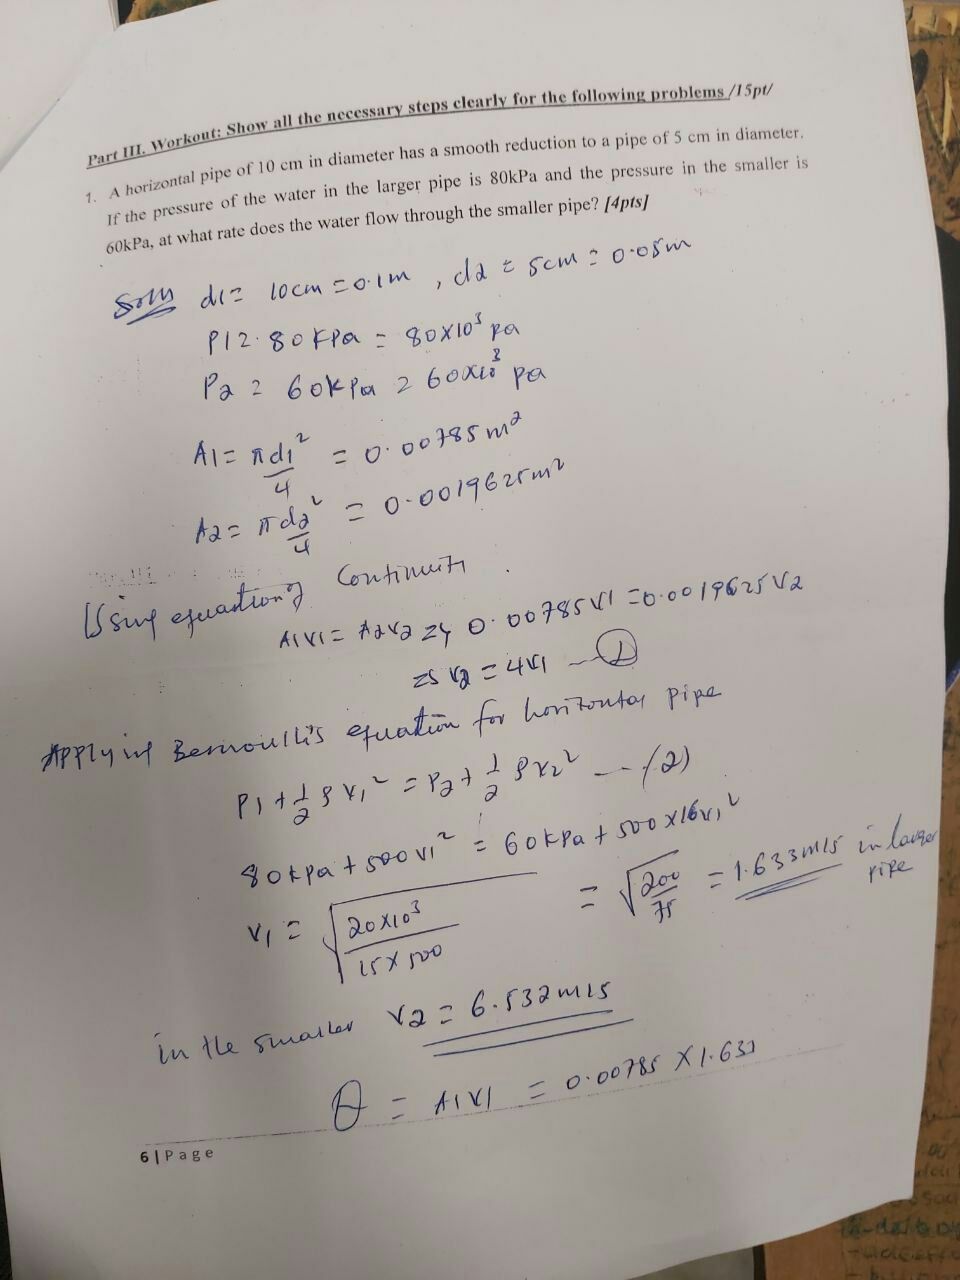 Part III. Workout: Show all the necessary steps clearly for the following problems /15pt/
1. A horizontal pipe of 10 cm in diameter has a smooth reduction to a pipe of 5 cm in diameter.
If the pressure of the water in the larger pipe is 80kPa and the pressure in the smaller is
60kPa, at what rate does the water flow through the smaller pipe? [4pts]
Soln d1 = 10cm = 0.1m , d2 = 5cm = 0.05m
P1 = 80 kPa = 80x10³ pa
P2 = 60kPa = 60x10³ pa
A1 = πd1²/4 = 0.00785m²
A2 = πd2²/4 = 0.0019625m²
Using equation of Continuity
A1V1 = A2V2 => 0.00785V1 = 0.0019625V2
=> V2 = 4V1 -- (1)
Applying Bernoulli's equation for horizontal pipe
P1 + 1/2 ρV1² = P2 + 1/2 ρV2² --- (2)
80kpa + 500V1² = 60kPa + 500x16V1²
V1 = √(20x10³/15x500) = √(200/75) = 1.633m/s in larger pipe
in the smaller V2 = 6.532m/s
Q = A1V1 = 0.00785 x 1.633
6 | Page